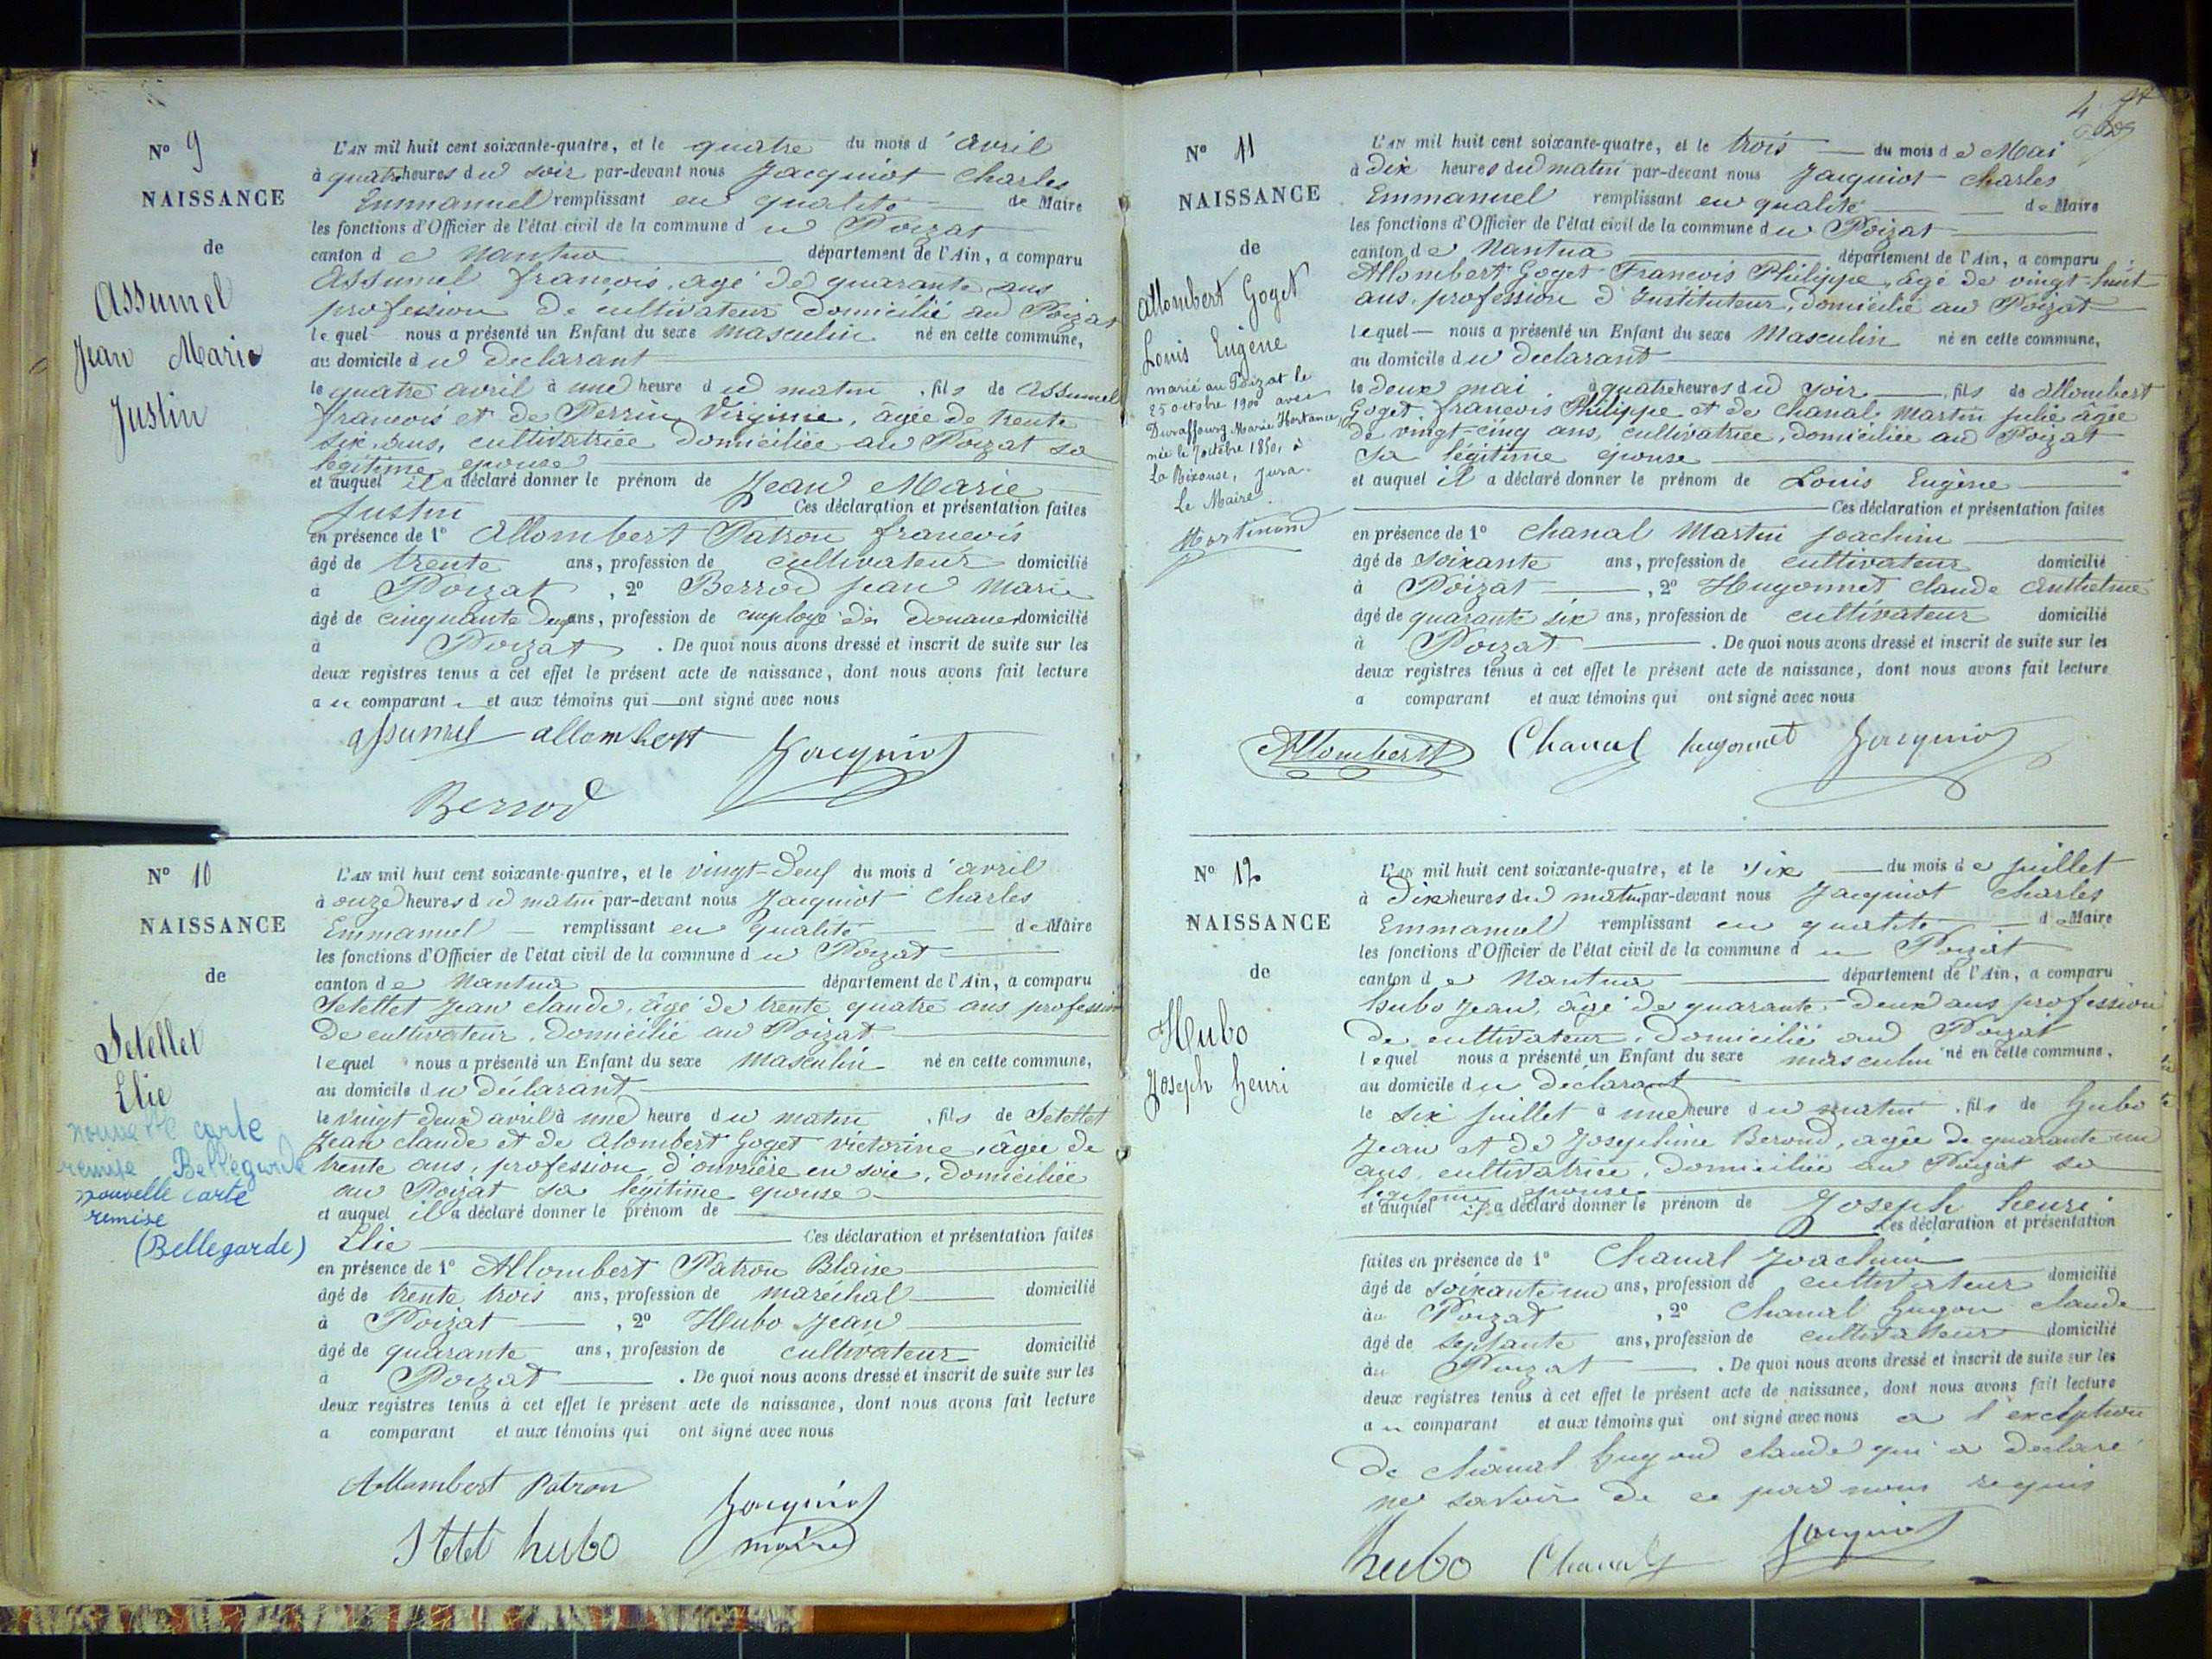 N° 9
NAISSANCE
de
Assumel
Jean Marie
Justin
L'AN mil huit cent soixante-quatre, et le quatre du mois d'avril
à quatre heures du soir par-devant nous Jacquiot Charles
Emmanuel remplissant en qualité de Maire
les fonctions d'Officier de l'état civil de la commune du Poizat
canton de Nantua département de l'Ain, a comparu
Assumel françois, agé de quarante ans
profession de cultivateur domicilié au Poizat
lequel nous a présenté un Enfant du sexe masculin né en cette commune,
au domicile du declarant
le quatre avril à une heure du matin, fils de Assumel
françois et de Perrin Virginie, âgée de trente
six ans, cultivatrice domiciliée au Poizat sa
légitime epouse
et auquel il a déclaré donner le prénom de Jean Marie
Justin Ces déclaration et présentation faites
en présence de 1° Allombert Patron françois
âgé de trente ans, profession de cultivateur domicilié
à Poizat, 2° Berrod jean Marie
âgé de cinquante deux ans, profession de employé des douanes domicilié
à Poizat. De quoi nous avons dressé et inscrit de suite sur les
deux registres tenus à cet effet le présent acte de naissance, dont nous avons fait lecture
au comparant et aux témoins qui ont signé avec nous
assumel allombert Jacquiot
Berrod
N° 10
NAISSANCE
de
Setellet
Elie
nouvelle carte
remise Bellegarde
nouvelle carte
remise
(Bellegarde)
L'AN mil huit cent soixante-quatre, et le vingt-deux du mois d'avril
à onze heures du matin par-devant nous Jacquiot Charles
Emmanuel remplissant en qualité de Maire
les fonctions d'Officier de l'état civil de la commune du Poizat
canton de Nantua département de l'Ain, a comparu
Setettet Jean claude, âgé de trente quatre ans profession
de cultivateur, domicilié au Poizat
lequel nous a présenté un Enfant du sexe masculin né en cette commune,
au domicile du déclarant
le vingt deux avril à une heure du matin, fils de Setettet
Jean claude et de Alombert Goget victorine, âgée de
trente ans, profession d'ouvrière en soie, domiciliée
au Poizat sa légitime epouse
et auquel il a déclaré donner le prénom de
Elie Ces déclaration et présentation faites
en présence de 1° Allombert Patron Blaise
âgé de trente trois ans, profession de maréchal domicilié
à Poizat, 2° Hubo Jean
âgé de quarante ans, profession de cultivateur domicilié
à Poizat. De quoi nous avons dressé et inscrit de suite sur les
deux registres tenus à cet effet le présent acte de naissance, dont nous avons fait lecture
a comparant et aux témoins qui ont signé avec nous
Allombert Patron Jacquiot
Stetet hubo maire
N° 11
NAISSANCE
de
Allombert Goget
Louis Eugène
marié au Poizat le
25 octobre 1900 avec
Duraffourg Marie Hortance,
née le 7 octobre 1850, à
La Rixouse, Jura.
Le Maire.
Martinand
L'AN mil huit cent soixante-quatre, et le trois du mois de Mai
à dix heures du matin par-devant nous Jacquiot Charles
Emmanuel remplissant en qualité de Maire
les fonctions d'Officier de l'état civil de la commune du Poizat
canton de Nantua département de l'Ain, a comparu
Allombert Goget François Philippe, âgé de vingt-huit
ans, profession d'Instituteur, domicilié au Poizat
lequel nous a présenté un Enfant du sexe Masculin né en cette commune,
au domicile du déclarant
le deux mai à quatre heures du soir, fils de Allombert
Goget françois Philippe et de Chanal Martin julie âgée
de vingt-cinq ans, cultivatrice, domiciliée au Poizat
sa légitime epouse
et auquel il a déclaré donner le prénom de Louis Eugène
Ces déclaration et présentation faites
en présence de 1° Chanal Martin joachim
âgé de soixante ans, profession de cultivateur domicilié
à Poizat, 2° Hugonnet claude Anthelme
âgé de quarante six ans, profession de cultivateur domicilié
à Poizat. De quoi nous avons dressé et inscrit de suite sur les
deux registres tenus à cet effet le présent acte de naissance, dont nous avons fait lecture
a comparant et aux témoins qui ont signé avec nous
Allombert Chanal hugonnet Jacquiot
N° 12
NAISSANCE
de
Hubo
Joseph henri
L'AN mil huit cent soixante-quatre, et le six du mois de juillet
à dix heures du matin par-devant nous Jacquiot Charles
Emmanuel remplissant en qualité de Maire
les fonctions d'Officier de l'état civil de la commune du Poizat
canton de Nantua département de l'Ain, a comparu
hubo jean, âgé de quarante-deux ans profession
de cultivateur, domicilié au Poizat
lequel nous a présenté un Enfant du sexe masculin né en cette commune,
au domicile du déclarant
le six juillet à une heure du matin, fils de hubo
Jean et de Josephine Berond, agée de quarante un
ans, cultivatrice, domiciliée au Poizat sa
légitime épouse
et auquel il a déclaré donner le prénom de Joseph henri
Ces déclaration et présentation
faites en présence de 1° Chanal Joachim
âgé de soixante un ans, profession de cultivateur domicilié
au Poizat, 2° Chanal Gugon claude
âgé de septante ans, profession de cultivateur domicilié
au Poizat. De quoi nous avons dressé et inscrit de suite sur les
deux registres tenus à cet effet le présent acte de naissance, dont nous avons fait lecture
au comparant et aux témoins qui ont signé avec nous a l'exception
de Chanal Gugon claude qui a declaré
ne savoir de ce par nous requis
hubo Chanal Jacquiot